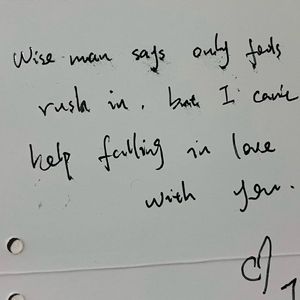 Wise man says only fools
rush in. but I can't
help falling in love
with you.